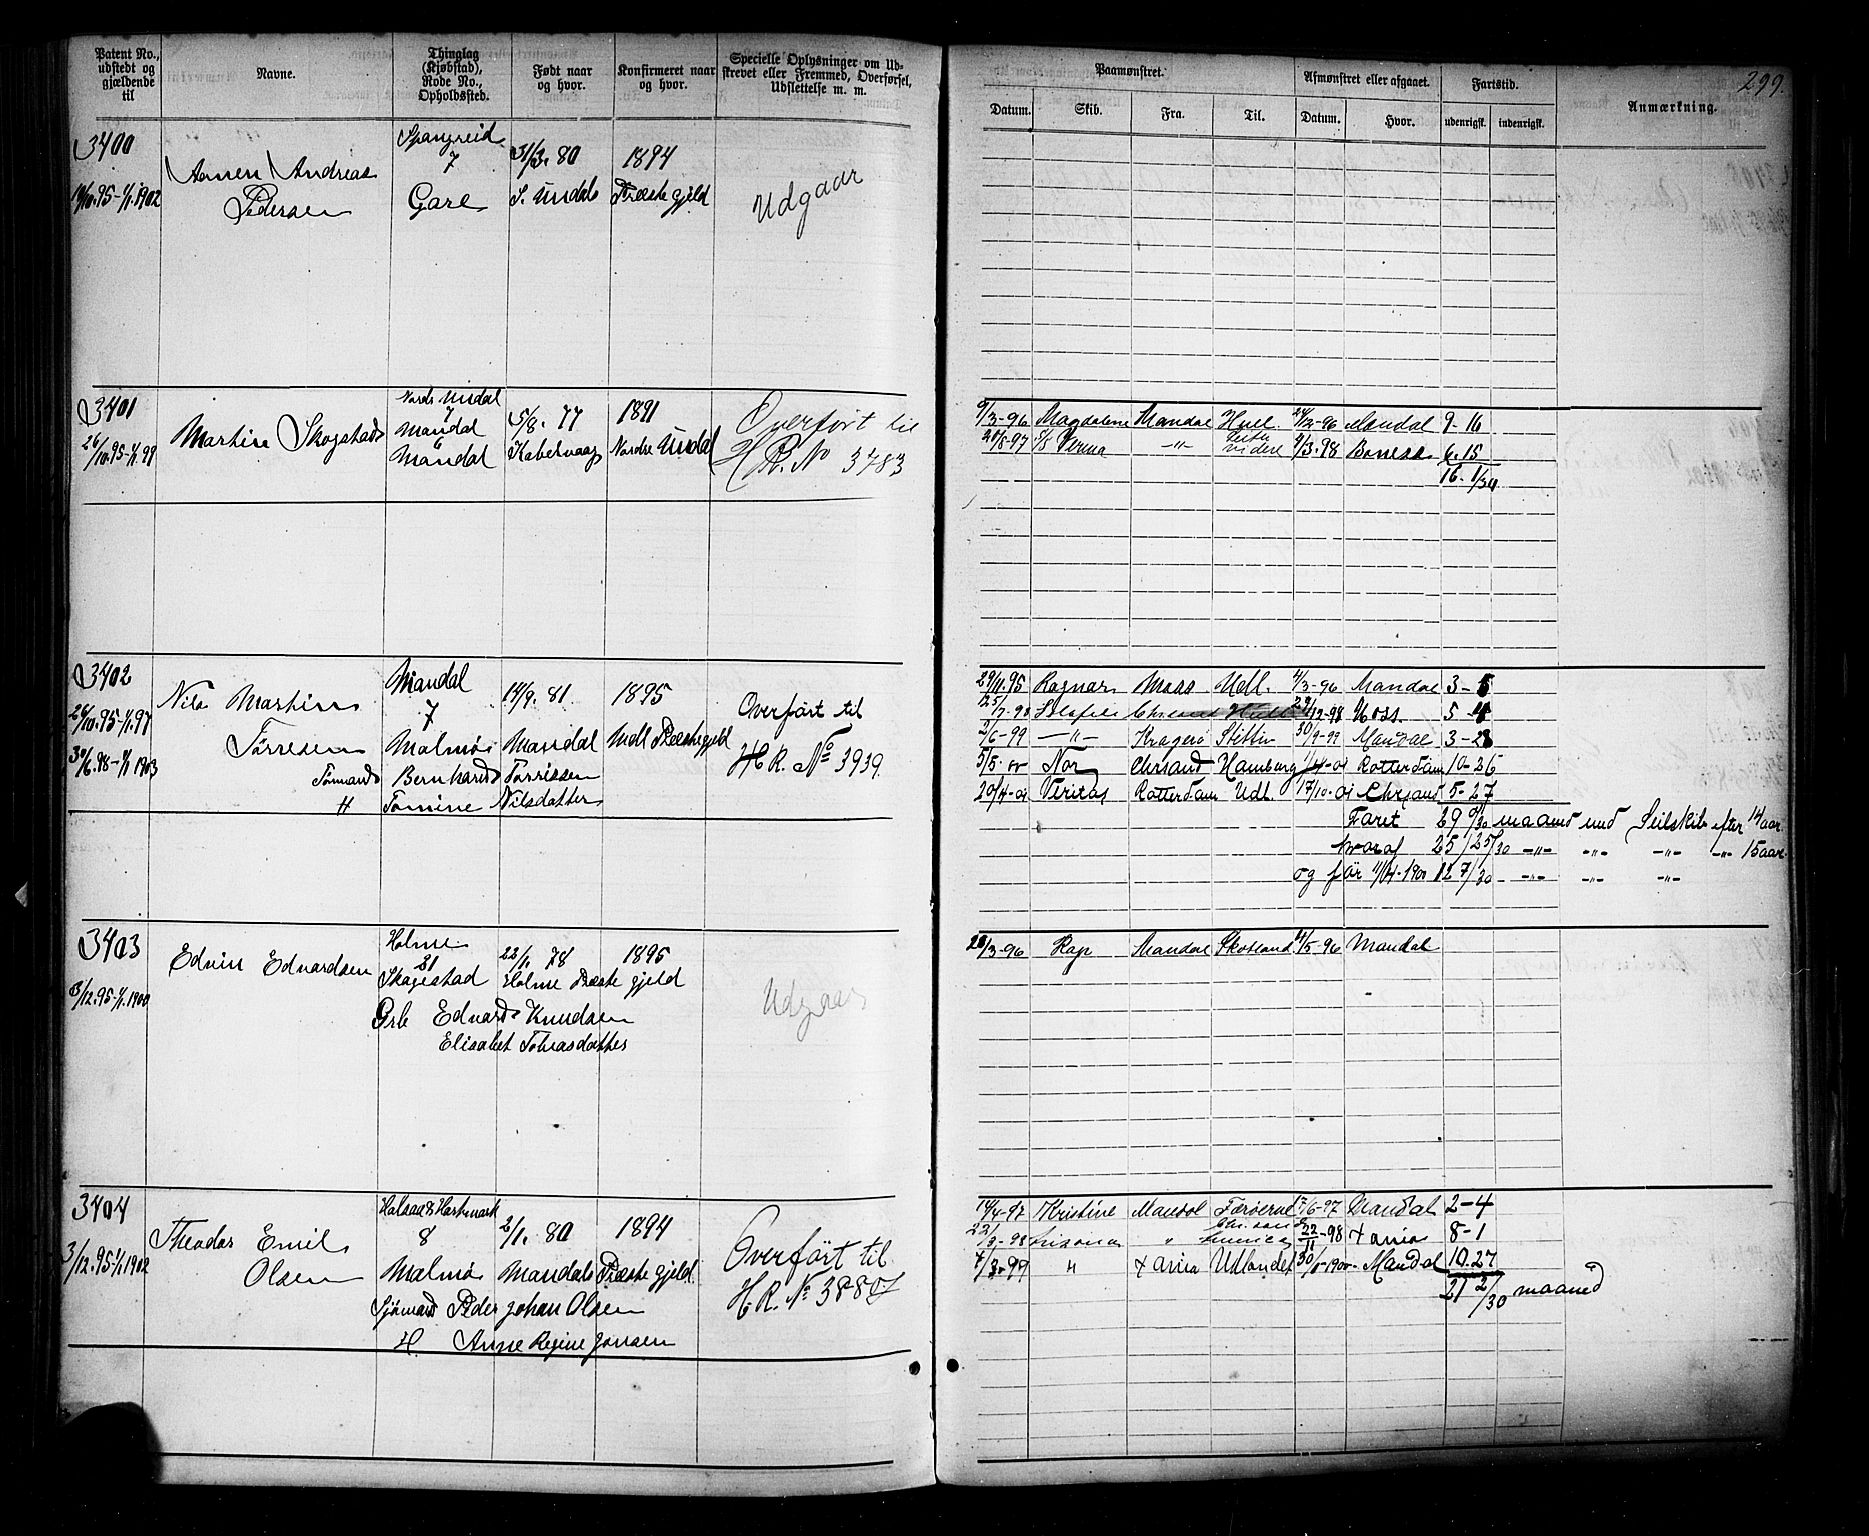 299.
Patent No., udstedt og gjældende til
Navne.
Thinglag (Kjøbstad), Rode No., Opholdssted.
Født naar og hvor.
Konfirmeret naar og hvor.
Specielle Oplysninger om Udskrevet eller Fremmed, Overførsel, Udslettelse m. m.
Paamønstret.
Afmønstret eller afgaaet.
Fartstid.
Anmærkning.
Datum. Skib. Fra. Til. Datum. Hvor. udenrigsk. indenrigsk.
3400
Spangreid
7
31/3. 80 1894
Aanen Andreas
Pedersen
Gare S. Undal Præstegjeld
Udgaar
3401
Nordr Undal
7
Mandal
6
Mandal
26/10.95-1/1.99
Martin Skogstad
5/8. 77 1891
Kabelvaag Nordre Undal
Overført til
H R. No 3783
9/3-96 Magdalene Mandal Hull 24/12-96 Mandal 9-16
S/S Verma -"- videre 9/3.98 Boness 6.15
16. 1/30
3402
Mandal
7
14/9. 81 1895
26/10.95-1/1.97
Nils Martin
Tørresen
Malmø Mandal Mdl Præstegjeld
30/6.98-1/1 1903
Tømmand Bernhard Torrissen
H Tomine Nilsdatter
Overført til
H. R. No 3939.
29/11.95 Ragnar Moss Udl. 4/3-96 Mandal 3-5
Moss. 5-
2/6-99 -"- Kragerø Stettin 30/9-99 Mandal 3-28
5/5. 00 Nor Chrsand Hamburg 1/4-01 Rotterdam 10-26
20/4-01 Veritas Rotterdam Udl. 17/10-01 Chrsand 5-27
Faret 29 0/30 maaned med Seilskib efter 14 aar.
hvoraf 25 25/30 -"- -"- -"- -"- 15 aar.
og før 11/4-1900 12 7/30 -"- -"- -"-
3403
Holme
21
22/1. 78 1895
3/12.95-1/1.1900
Edvin Edvardsen
Skogestad Holme Præstegjeld
Edvard Knudsen
Elisabet Tobiasdatter
Udgaar
28/3-96 Rap Mandal Skotland 4/5-96 Mandal
3404
Halsaa & Hartmark
8
2/1. 80 1894
3/12.95-1/1.1902
Theodor Emil
Olsen
Malmø Mandals Præstegjeld.
Sjømand Peder Johan Olsen
H. Anne Regine Jonsen
Overført til
H. R. No 3880
14/4-97 Kristine Mandal Færøerne 17/6-97 Mandal 2-4
22/11-98 Xania 8-1
4/3-99 " Xania Udlandet Mandal 10.27
21 2/30 maaned